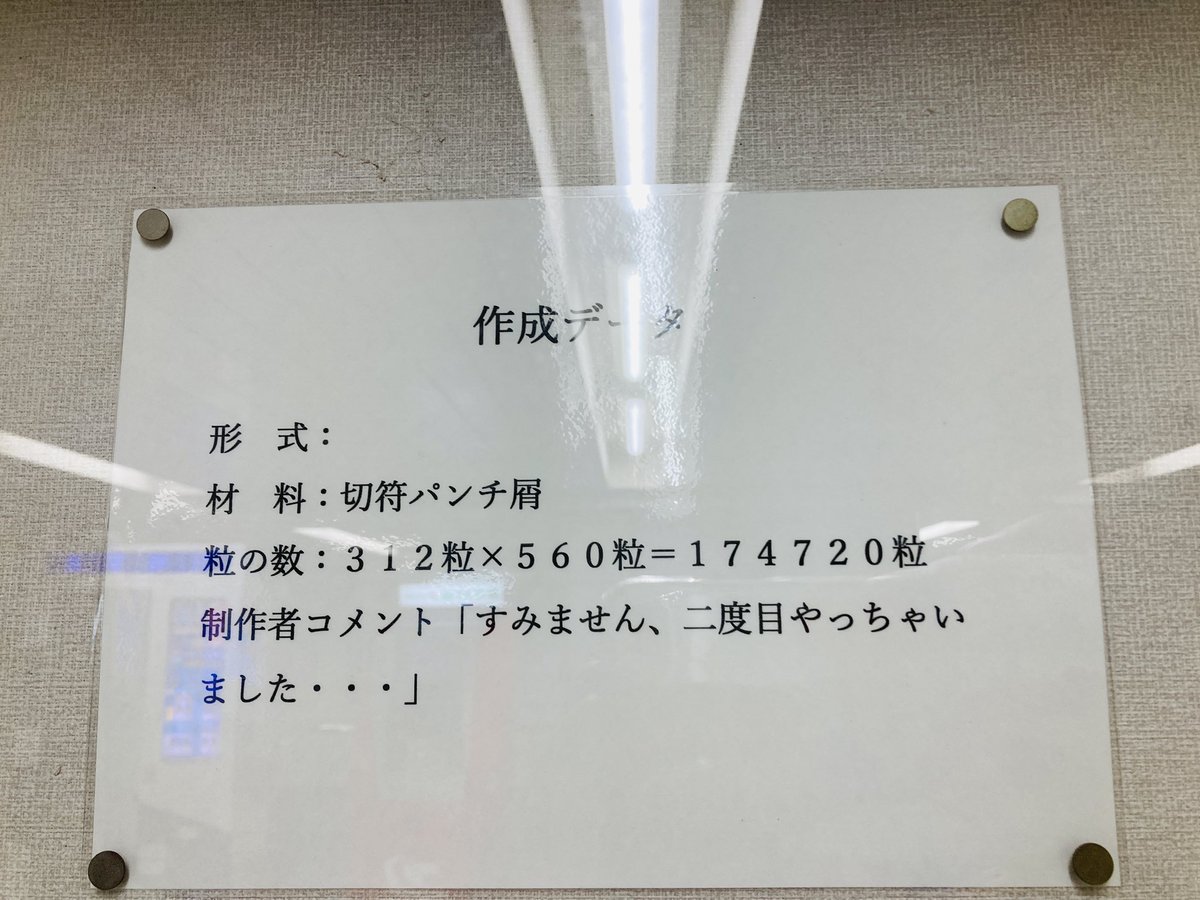 作成データ
形　式：
材　料：切符パンチ屑
粒の数：３１２粒×５６０粒＝１７４７２０粒
制作者コメント「すみません、二度目やっちゃい
ました・・・」